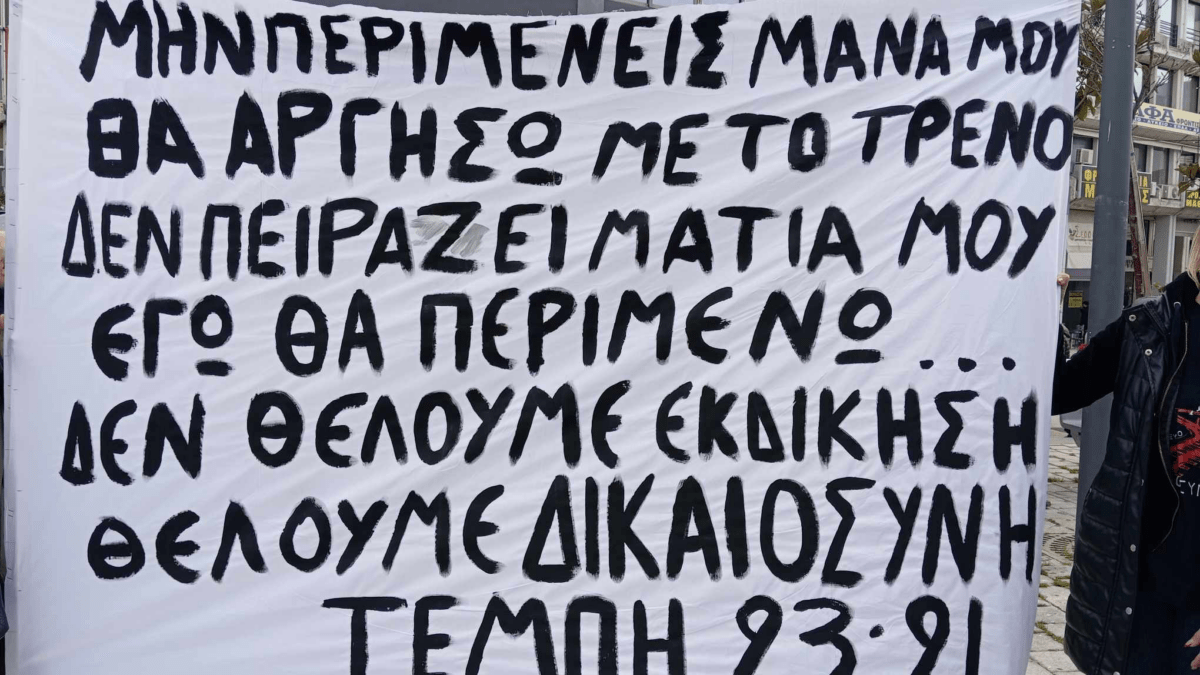 ΜΗΝ ΠΕΡΙΜΕΝΕΙΣ ΜΑΝΑ ΜΟΥ
ΘΑ ΑΡΓΗΣΩ ΜΕ ΤΟ ΤΡΕΝΟ
ΔΕΝ ΠΕΙΡΑΖΕΙ ΜΑΤΙΑ ΜΟΥ
ΕΓΩ ΘΑ ΠΕΡΙΜΕΝΩ...
ΔΕΝ ΘΕΛΟΥΜΕ ΕΚΔΙΚΗΣΗ
ΘΕΛΟΥΜΕ ΔΙΚΑΙΟΣΥΝΗ
ΤΕΜΠΗ 23.21